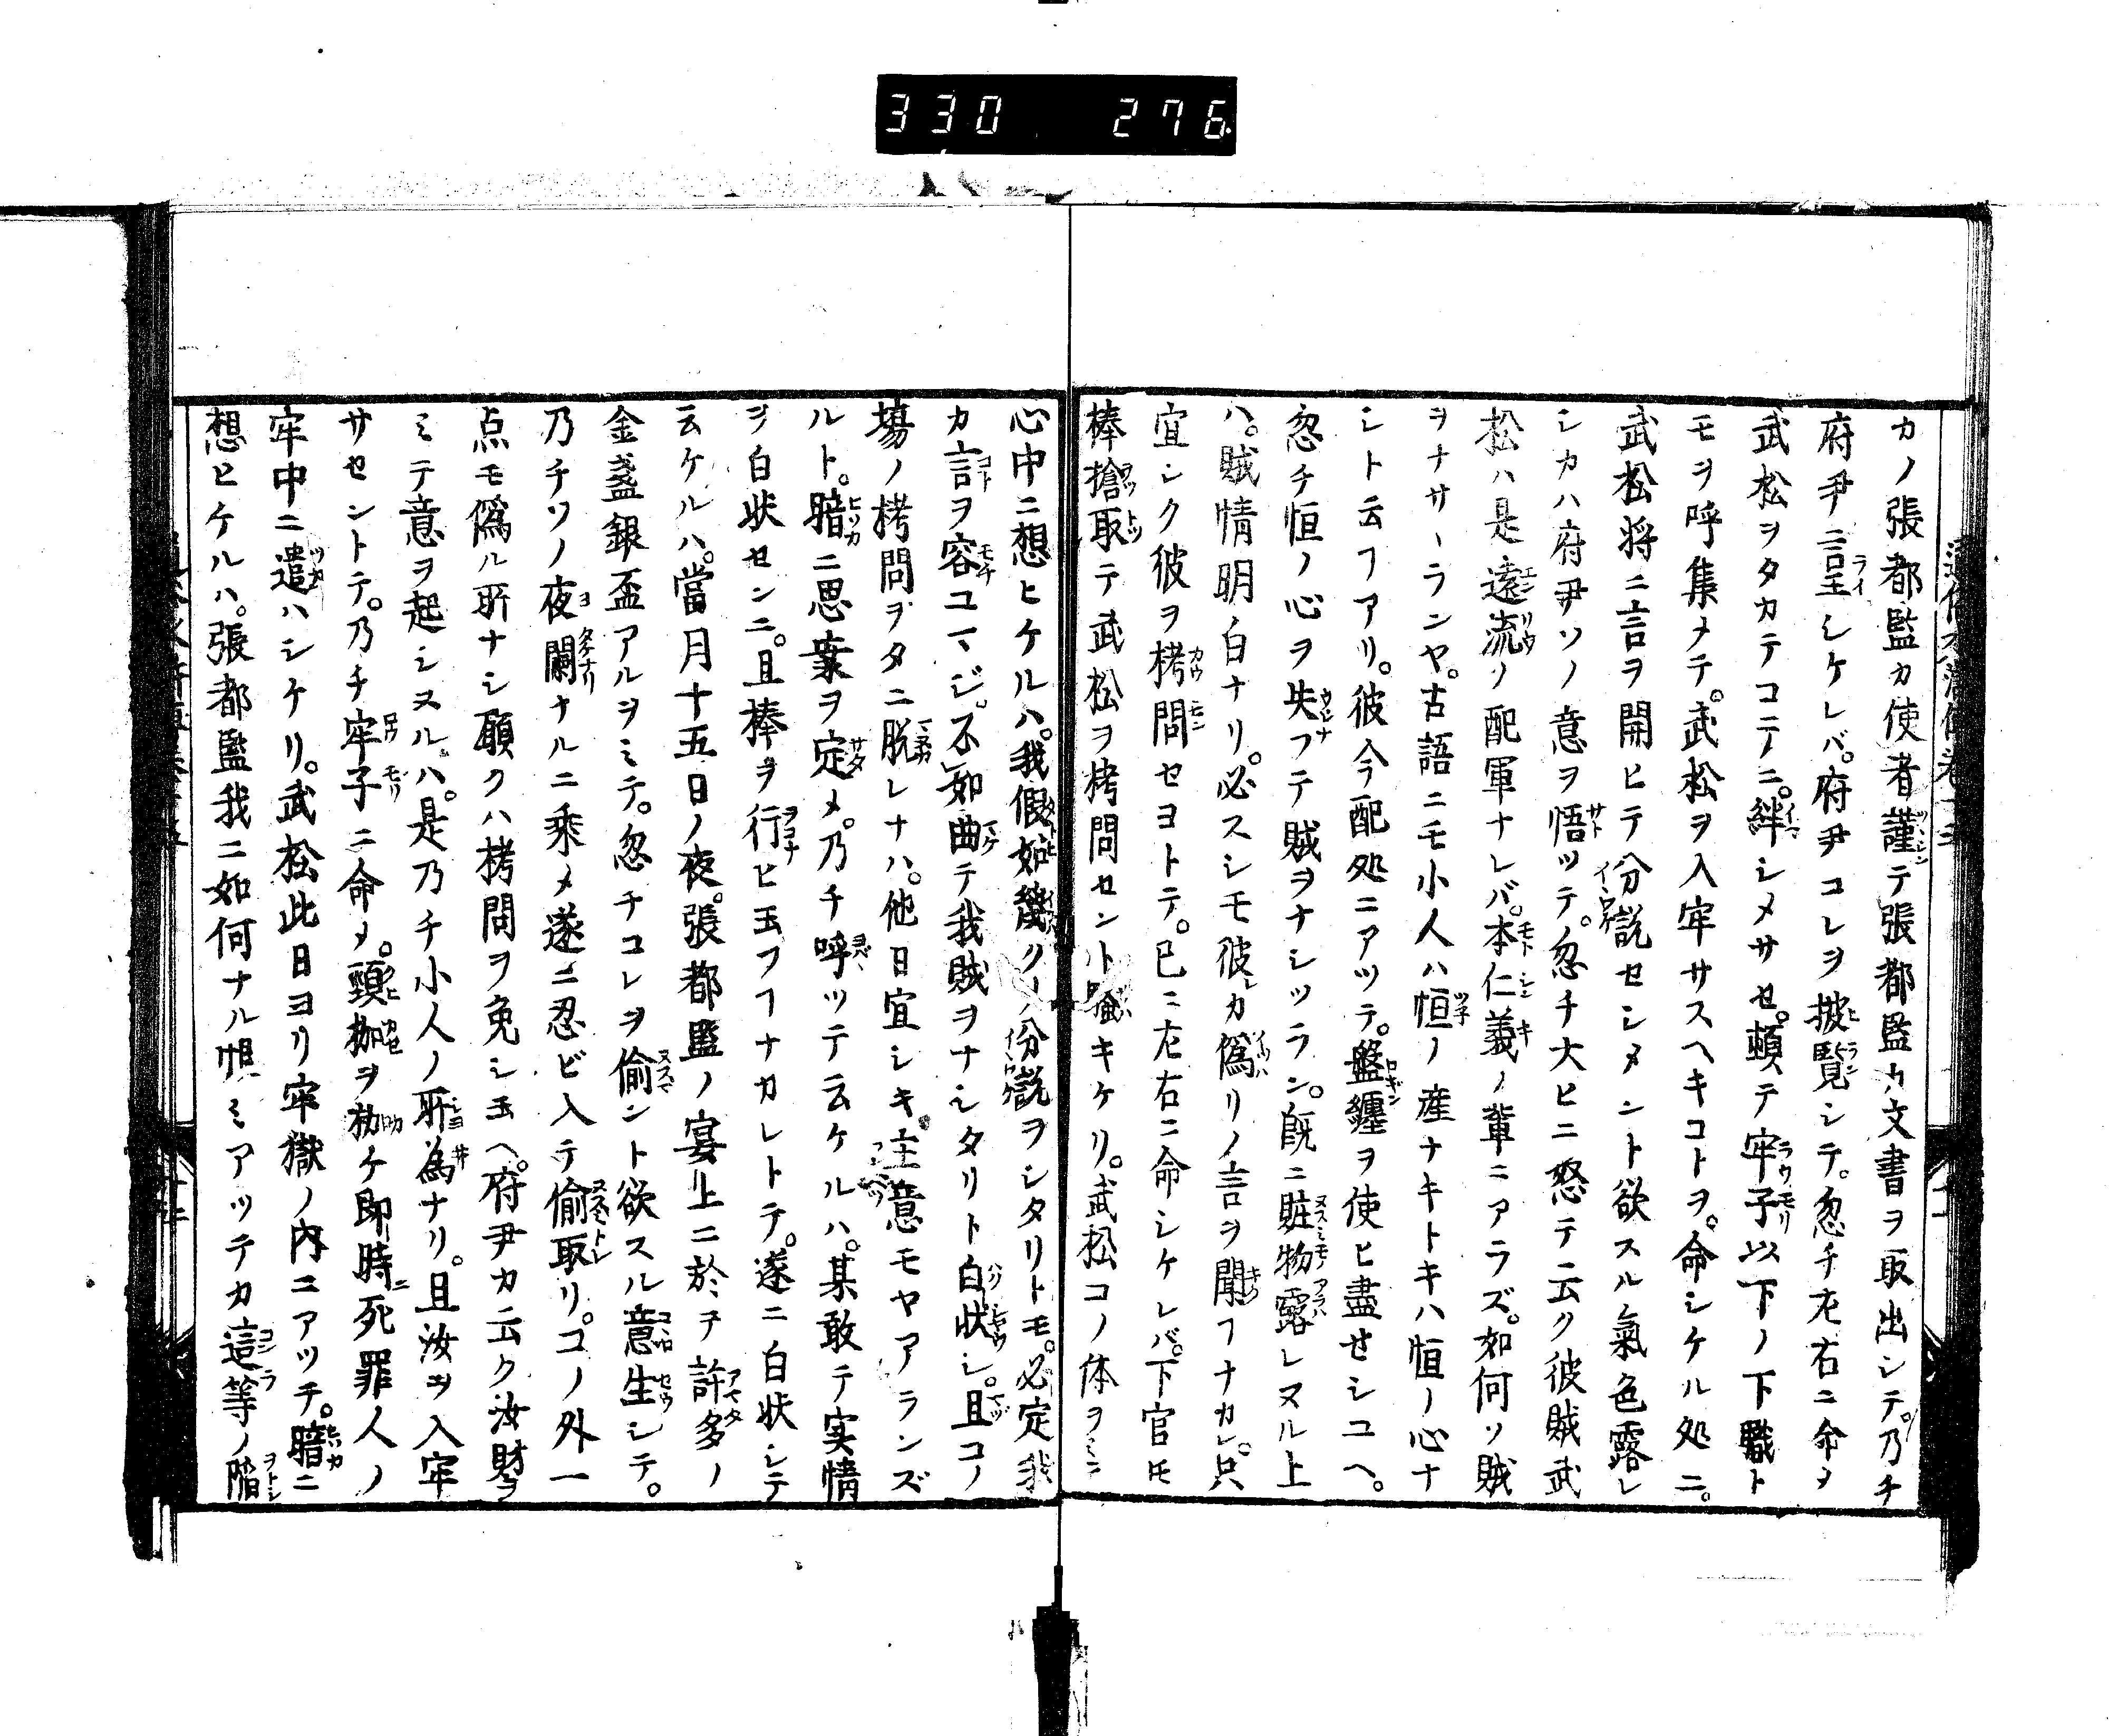 330 276
カノ張都監カ使者謹テ張都監カ文書ヲ取出シテ。乃チ
府尹ニ呈シケレバ。府尹コレヲ披覧シテ。忽チ左右ニ命メ
武松ヲタカテコテニ。絆シメサセ。頓テ牢子以下ノ下職ト
モヲ呼集メテ。武松ヲ入牢サスヘキコトヲ。命シケル処ニ。
武松将ニ言ヲ開ヒテ分説セシメント欲スル氣色露レ
シカハ府尹ソノ意ヲ悟ツテ。忽チ大ヒニ怒テ云ク彼賊武
松ハ是遠流ノ配軍ナレバ。本仁義ノ輩ニアラズ。如何ソ賊
ヲナサヽランヤ。古語ニモ小人ハ恒ノ産ナキトキハ恒ノ心ナ
シト云フアリ。彼今配処ニアツテ。盤纏ヲ使ヒ盡セシユヘ。
忽チ恒ノ心ヲ失フテ賊ヲナシツラン。既ニ賍物露レヌル上
ハ。賊情明白ナリ。必スシモ彼カ偽リノ言ヲ聞フナカレ。只
宜シク彼ヲ栲問セヨトテ。已ニ左右ニ命シケレバ。下官㐧
棒搶取テ武松ヲ栲問セント
キケリ。武松コノ体ヲミテ
心中ニ想ヒケルハ。我假如幾クノ分説ヲシタリトモ。必定我
カ言ヲ容ユマジ。不如曲テ我賊ヲナシタリト白状シ。且コノ
場ノ栲問ヲタニ脱レナハ。他日宜シキ主意モヤアランズ
ルト。暗ニ思案ヲ定メ。乃チ呼ツテ云ケルハ。某敢テ実情
ヲ白状センニ。且棒ヲ行ヒ玉フフナカレトテ。遂ニ白状シテ
云ケルハ。當月十五日ノ夜。張都監ノ宴上ニ於ヲ許多ノ
金盞銀盃アルヲミテ。忽チコレヲ偷ント欲スル意生シテ。
乃チソノ夜闌ナルニ乘メ遂ニ忍ビ入テ偷取リ。コノ外一
点モ偽ル所ナシ願クハ栲問ヲ免シ玉ヘ。府尹カ云ク汝財ヲ
ミテ意ヲ起シヌルハ。是乃チ小人ノ所為ナリ。且汝ヲ入牢
サセントテ。乃チ牢子ニ命メ。頸枷ヲ枷ケ即時ニ死罪人ノ
牢中ニ遣ハシケリ。武松此日ヨリ牢獄ノ内ニアツテ。暗ニ
想ヒケルハ。張都監我ニ如何ナル恨ミアツテカ這等ノ陥